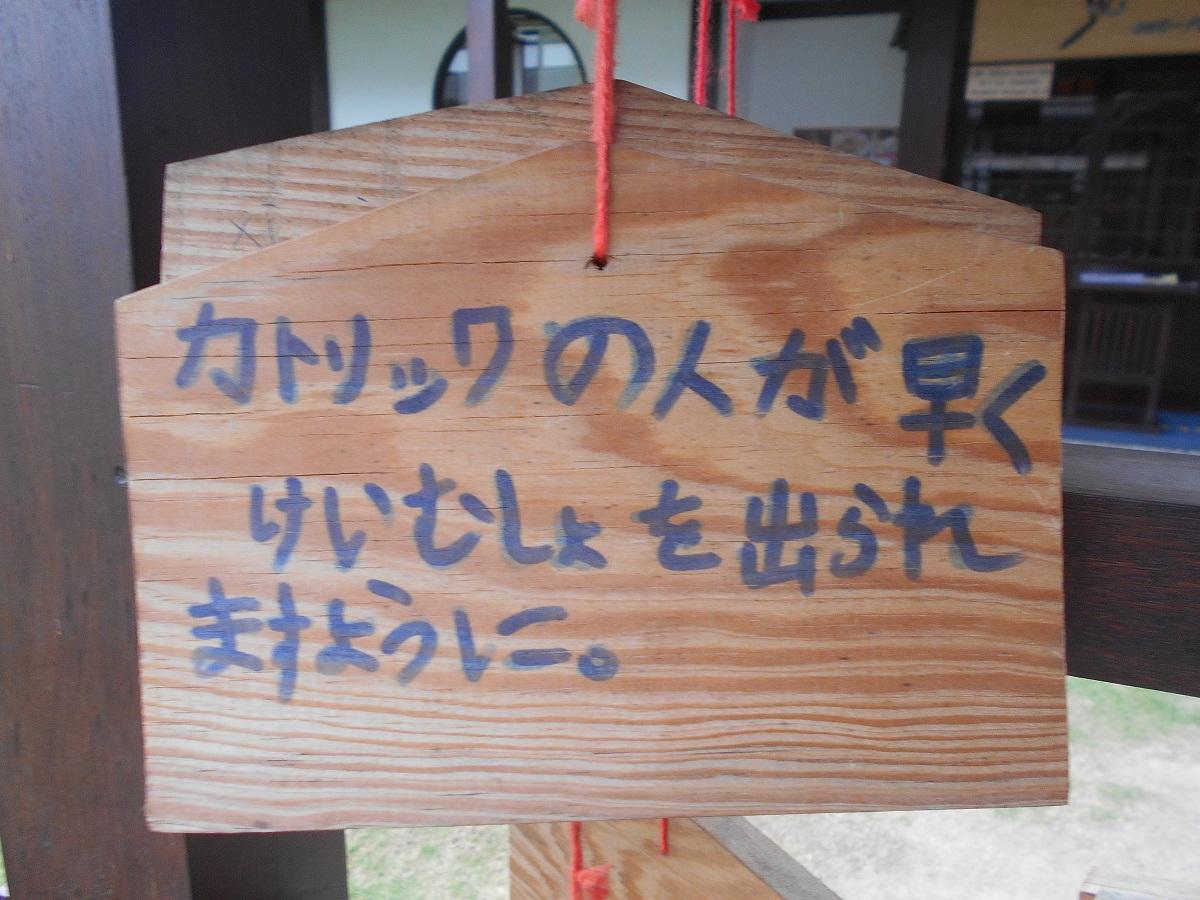 カトリックの人が早く
けいむしょを出られ
ますように。